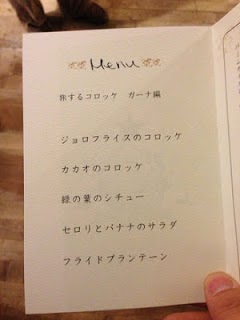 Menu
旅するコロッケ ガーナ編
ジョロフライスのコロッケ
カカオのコロッケ
緑の葉のシチュー
セロリとバナナのサラダ
フライドプランテーン